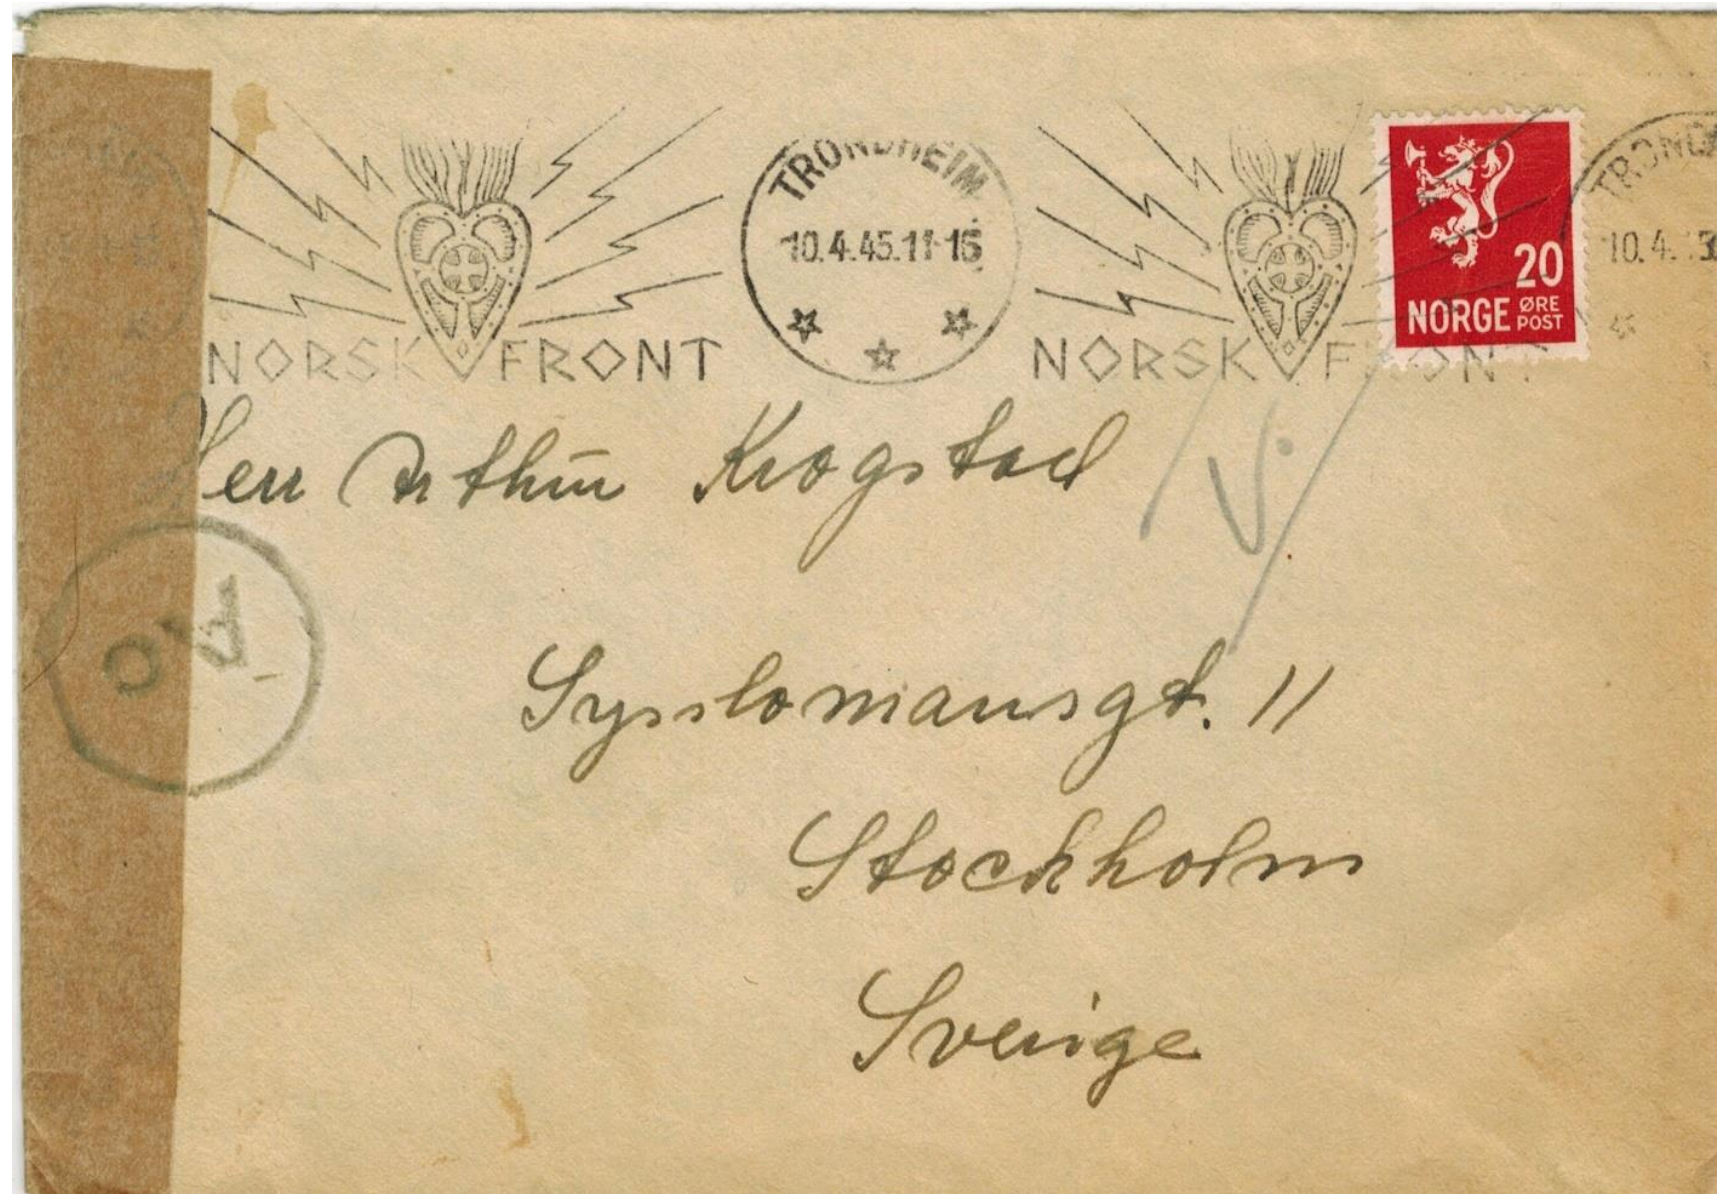 TRONDHEIM
10.4.45.11-16
NORSK FRONT
NORSK FRONT
20
NORGE ØRE POST
TROND
10.4.
Herr Arthur Krogstad
Sysslomansgt. 11
Stockholm
Sverige